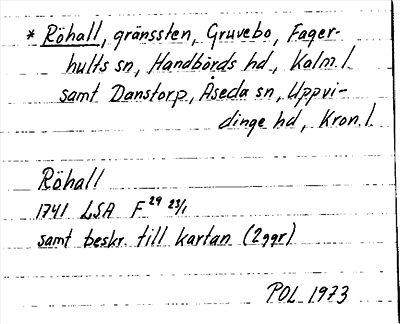 * Röhall, gränssten, Gruvebo, Fager-
hults sn, Handbörds hd, Kalm. l.
samt Danstorp, Åseda sn, Uppvi-
dinge hd, Kron. l.
Röhall
1741 LSA F 29 23/1
samt beskr. till kartan (2 ggr)
POL 1973